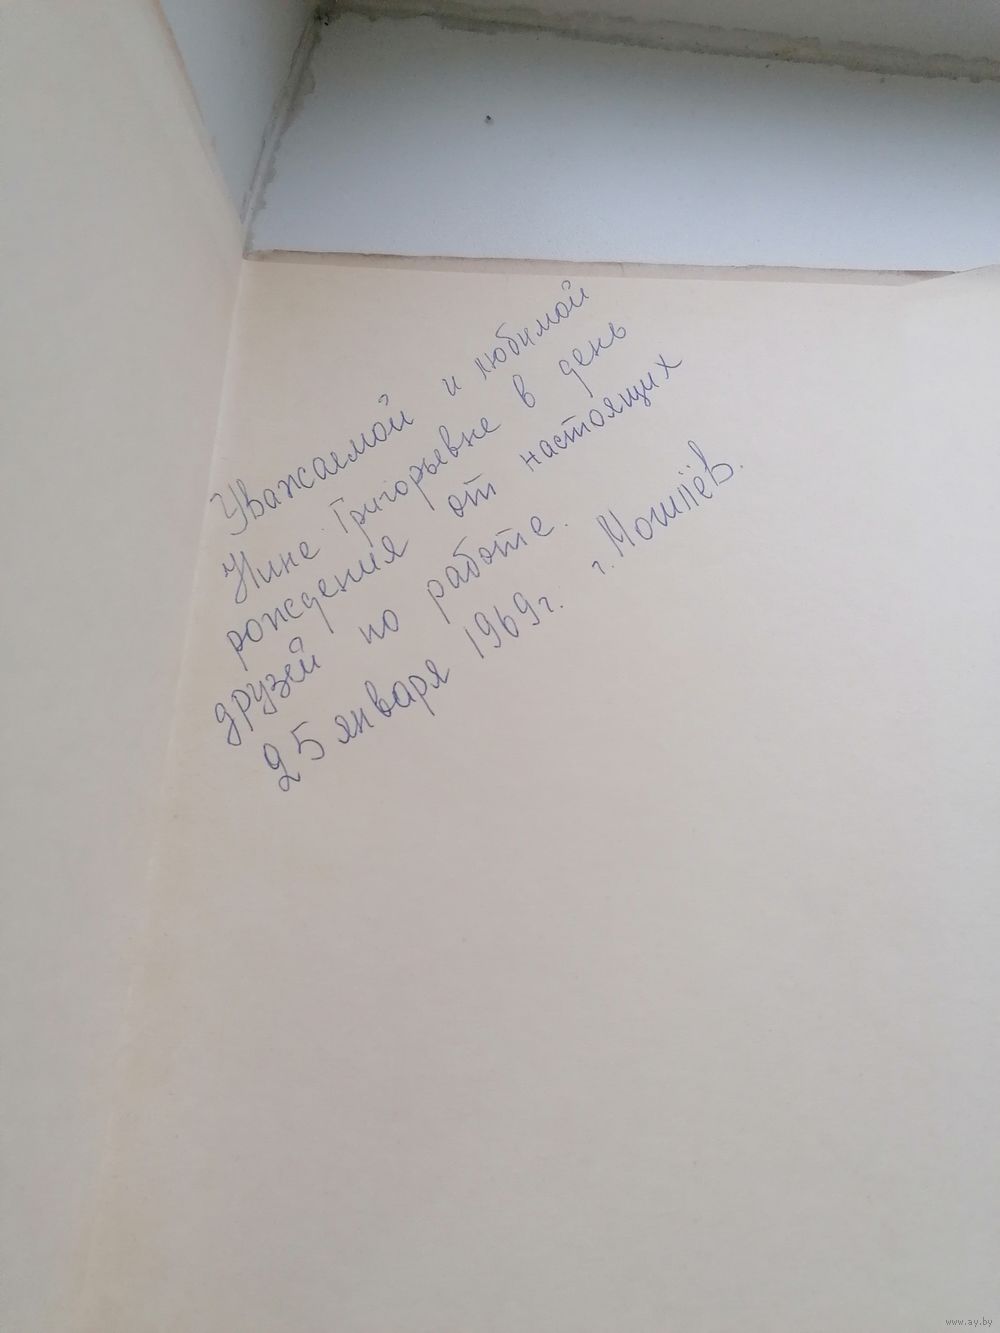 Уважаемой и любимой
Нине Григорьевне в день
рождения от настоящих
друзей по работе.
25 января 1969г. г. Могилёв.
www.ay.by